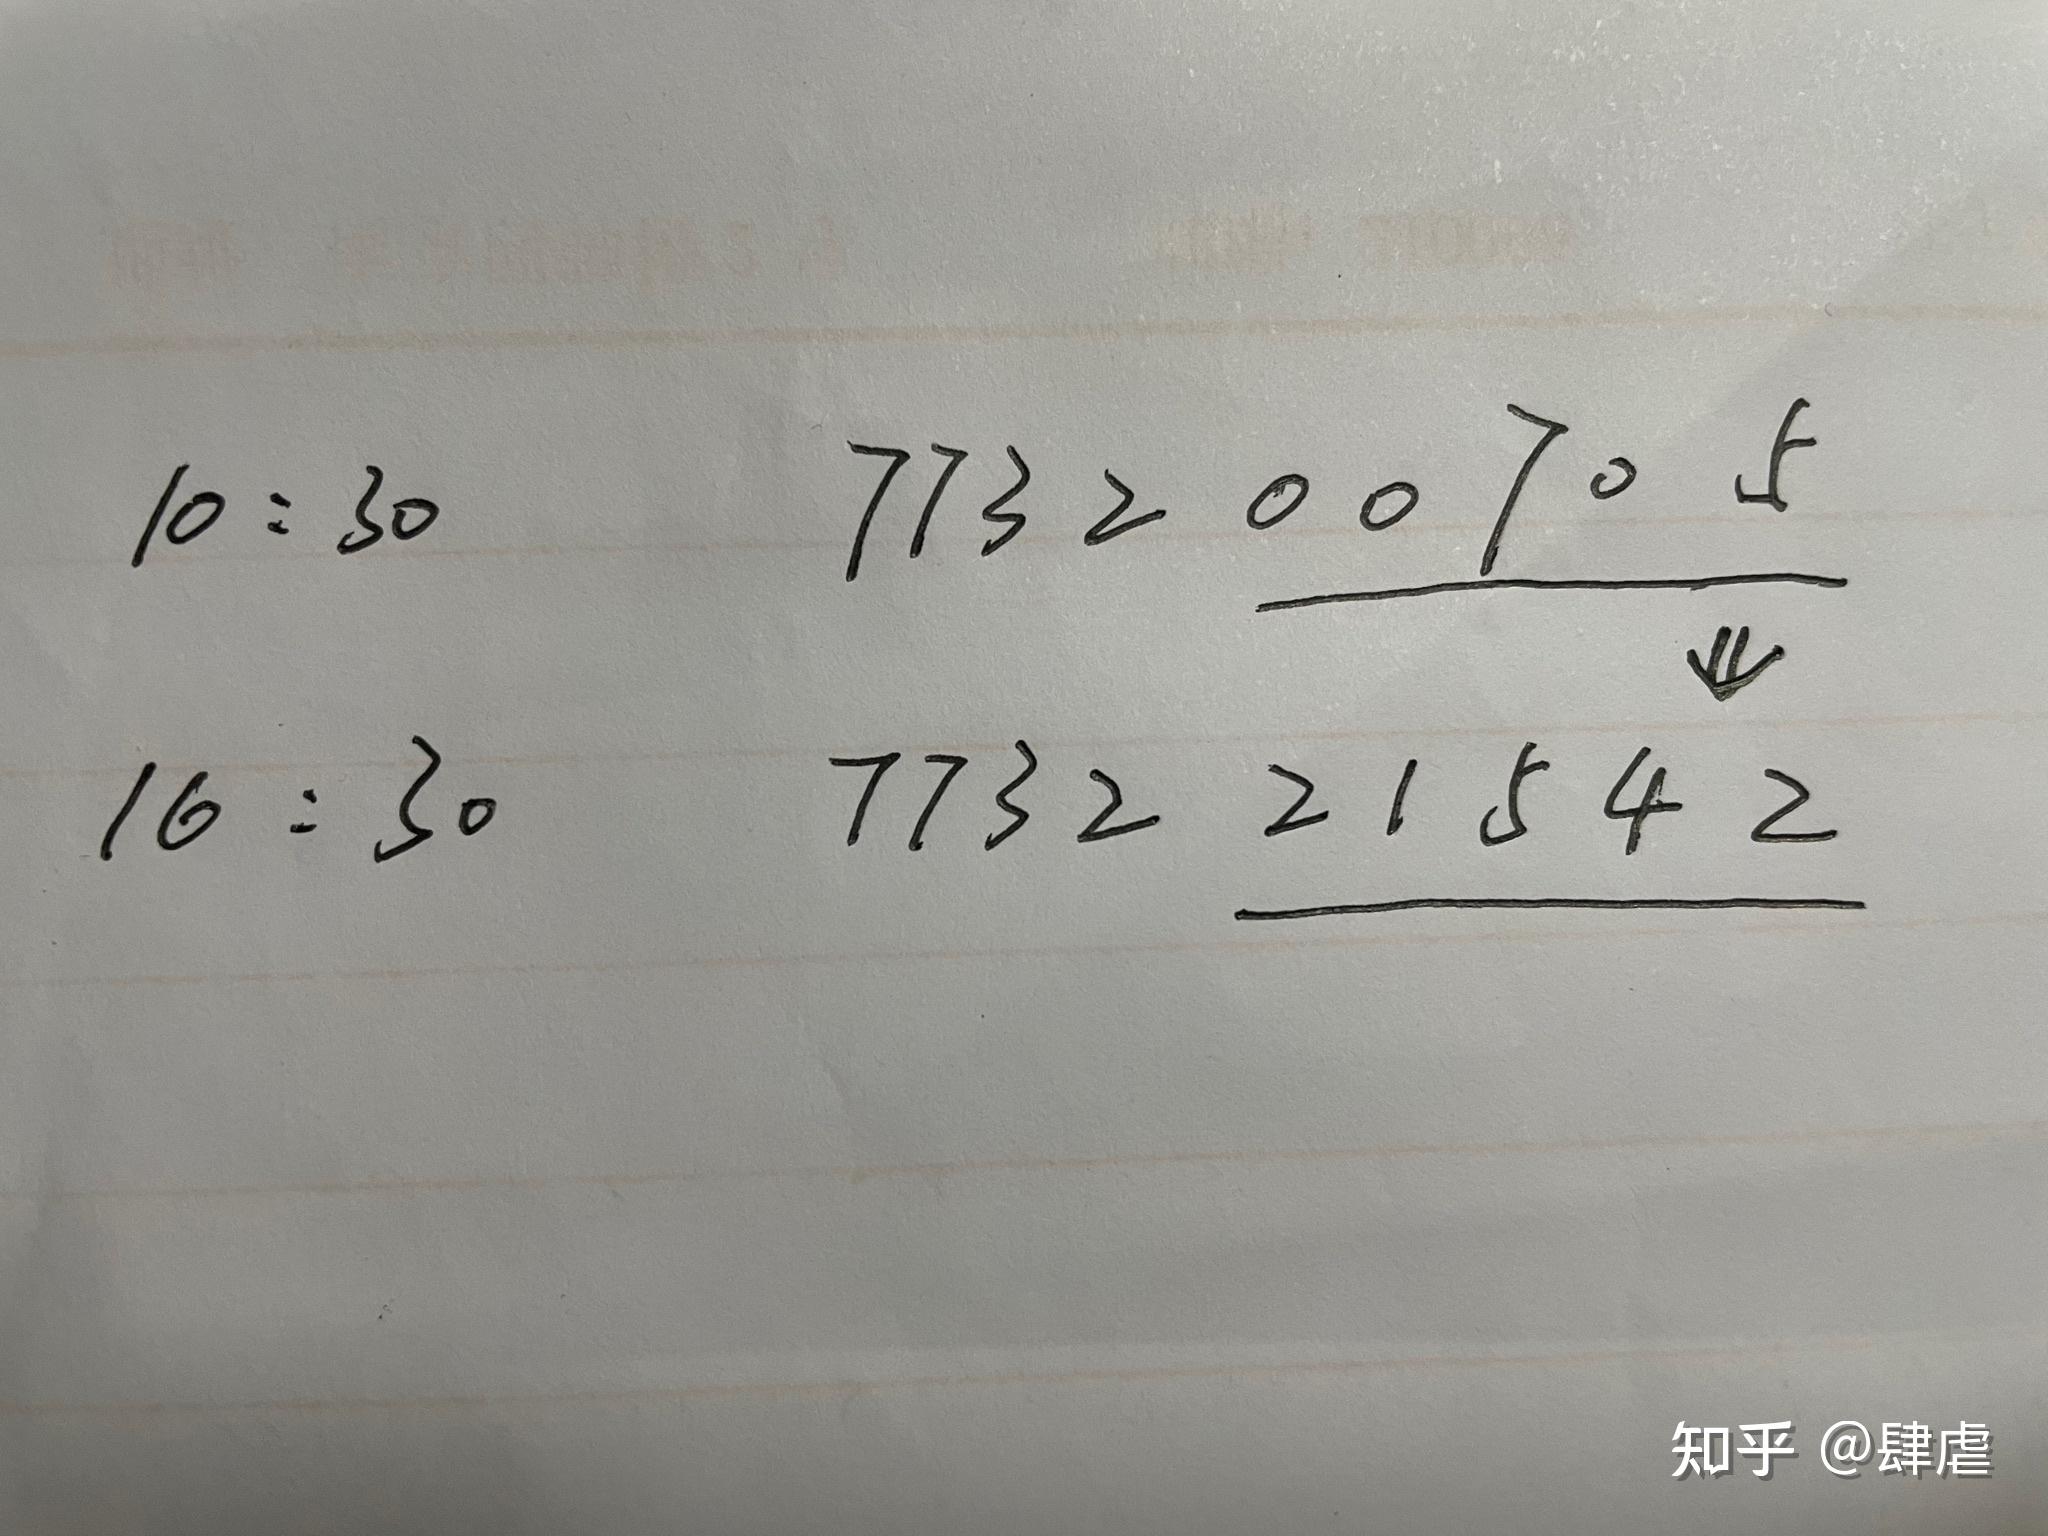 10:30 773200705
16:30 773221542
知乎 @肆虐